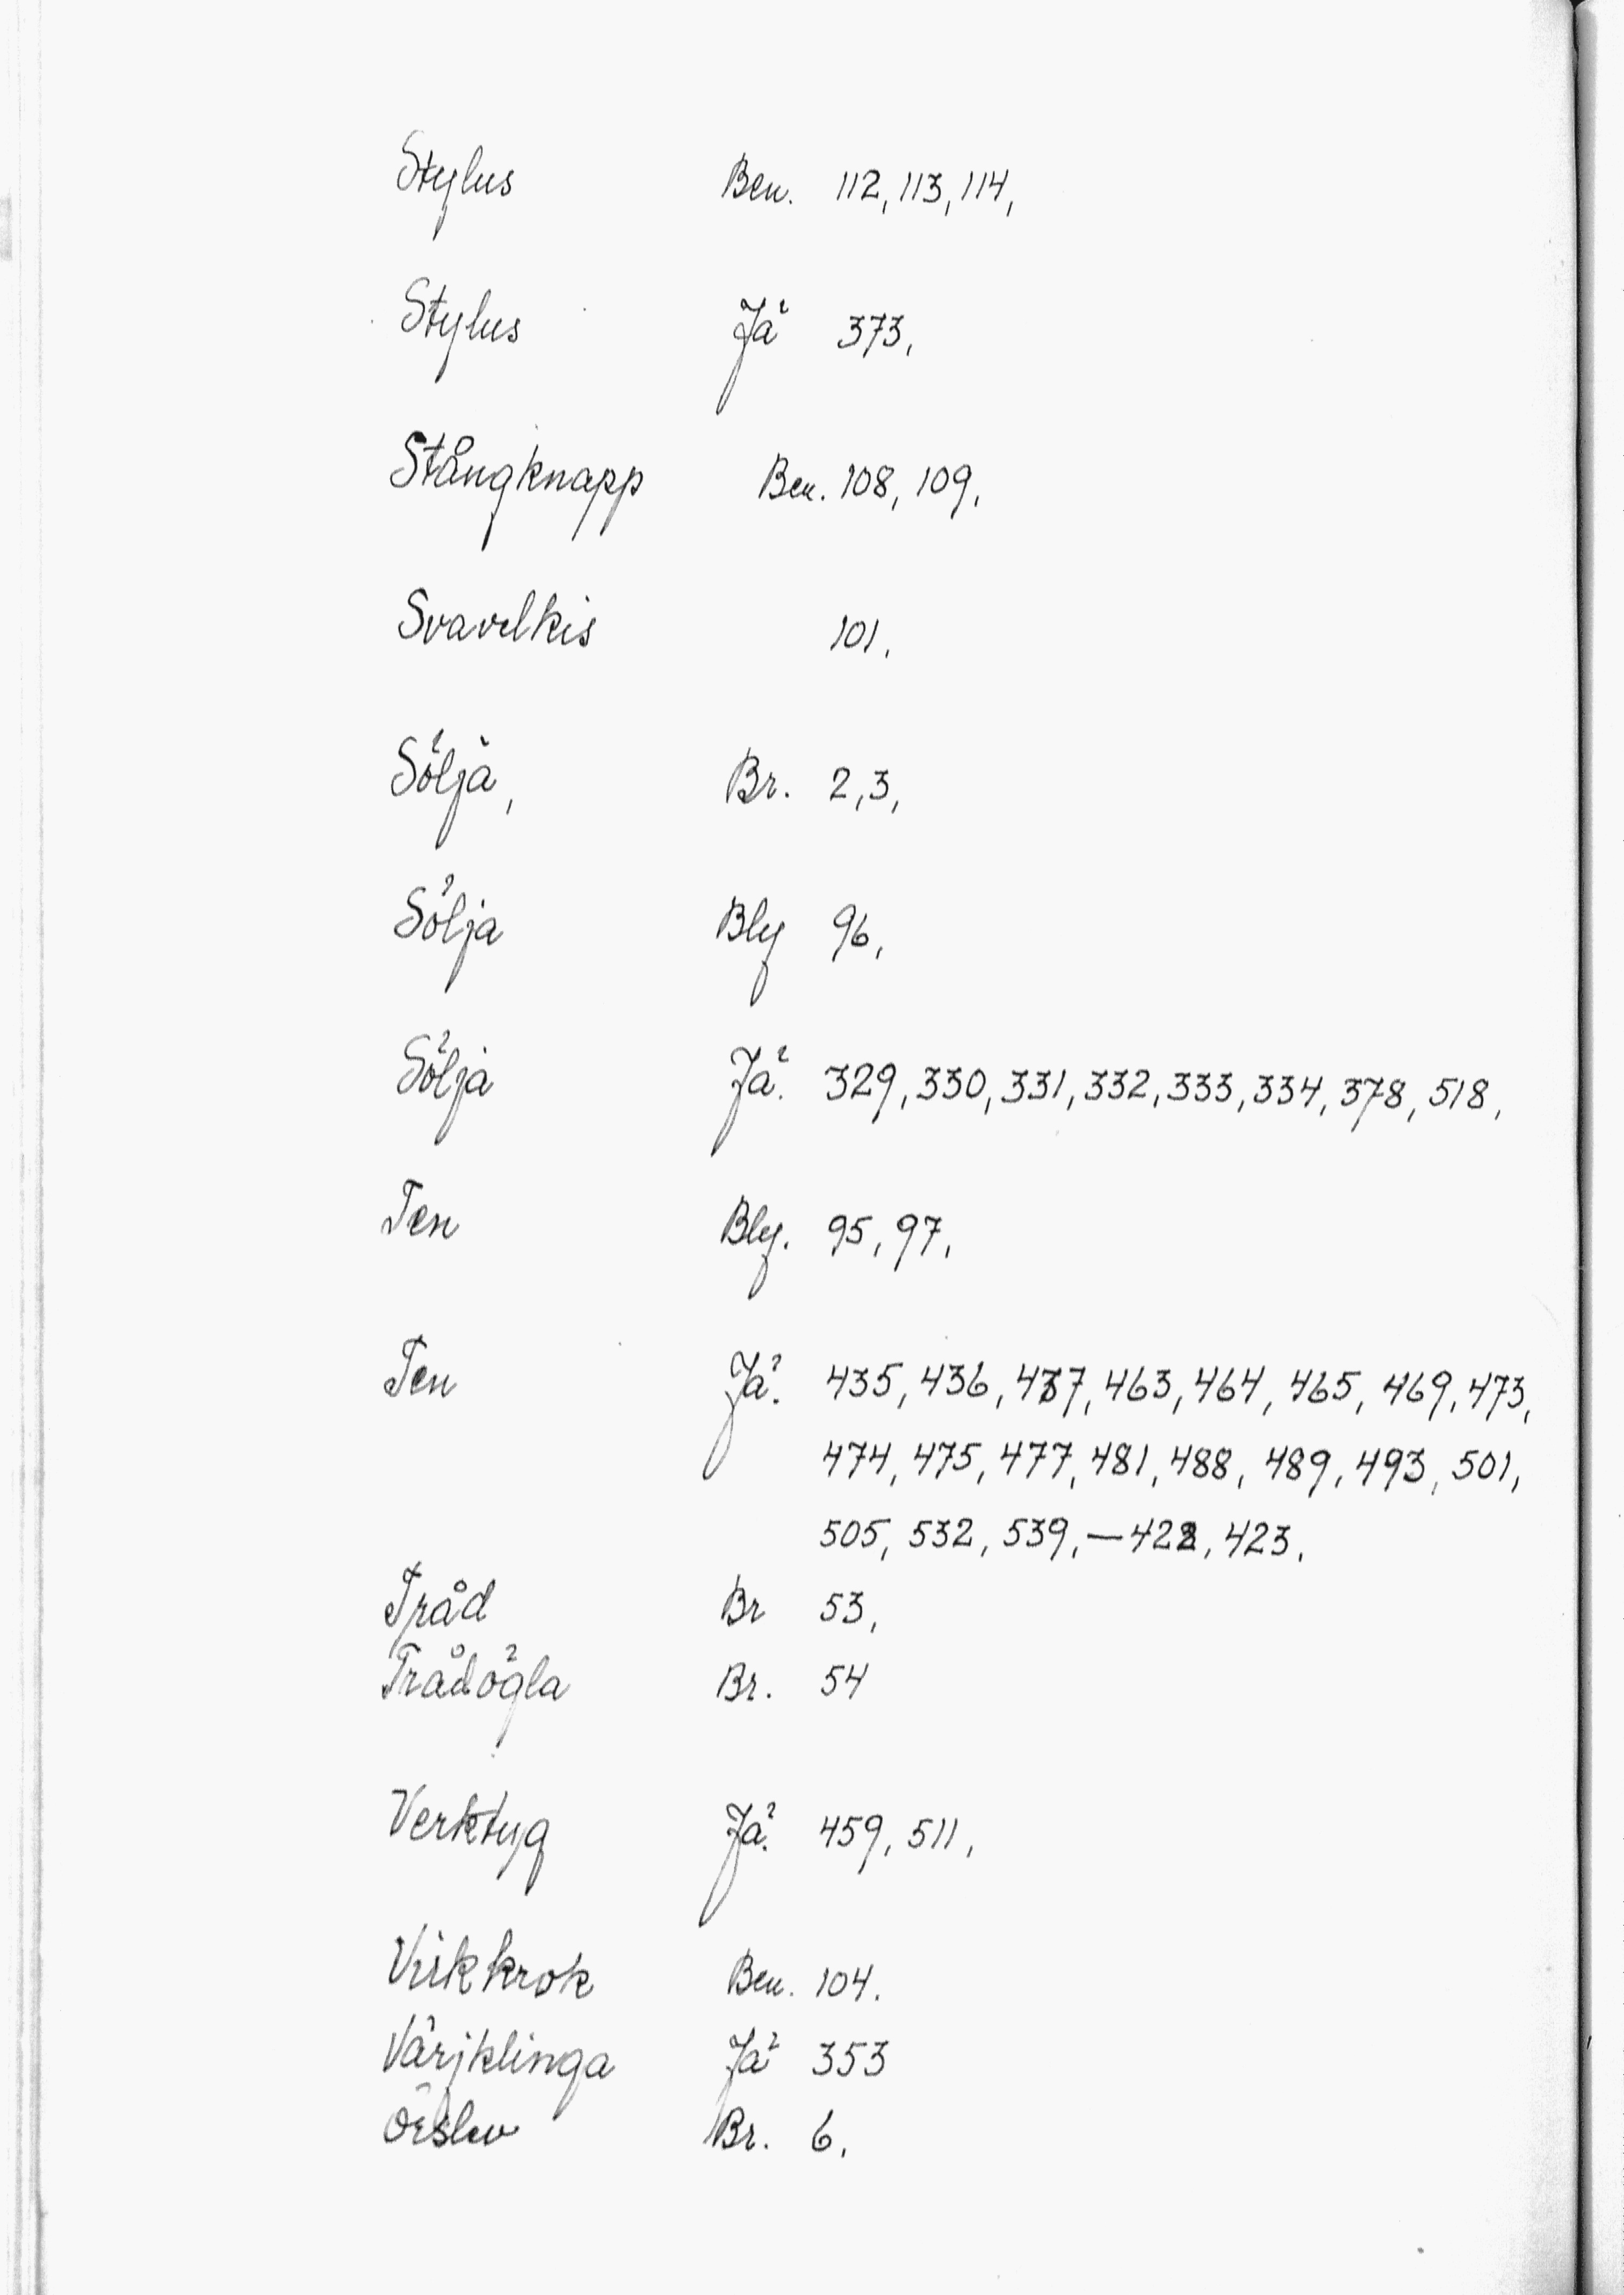 Stylus Ben. 112, 113, 114,
Stylus Jä 373,
Stångknapp Ben. 108, 109,
Svavelkis 101,
Sölja, Br. 2, 3,
Sölja Bly 96,
Sölja Jä. 329, 330, 331, 332, 333, 334, 378, 518,
Ten Bly. 95, 97,
Ten Jä. 435, 436, 437, 463, 464, 465, 469, 473,
474, 475, 477, 481, 488, 489, 493, 501,
505, 532, 539, — 422, 423,
Tråd Br 53,
Trådögla Br. 54
Verktyg Jä. 459, 511,
Virkkrok Ben. 104.
Värjklinga Jä 353
Örslev Br. 6,